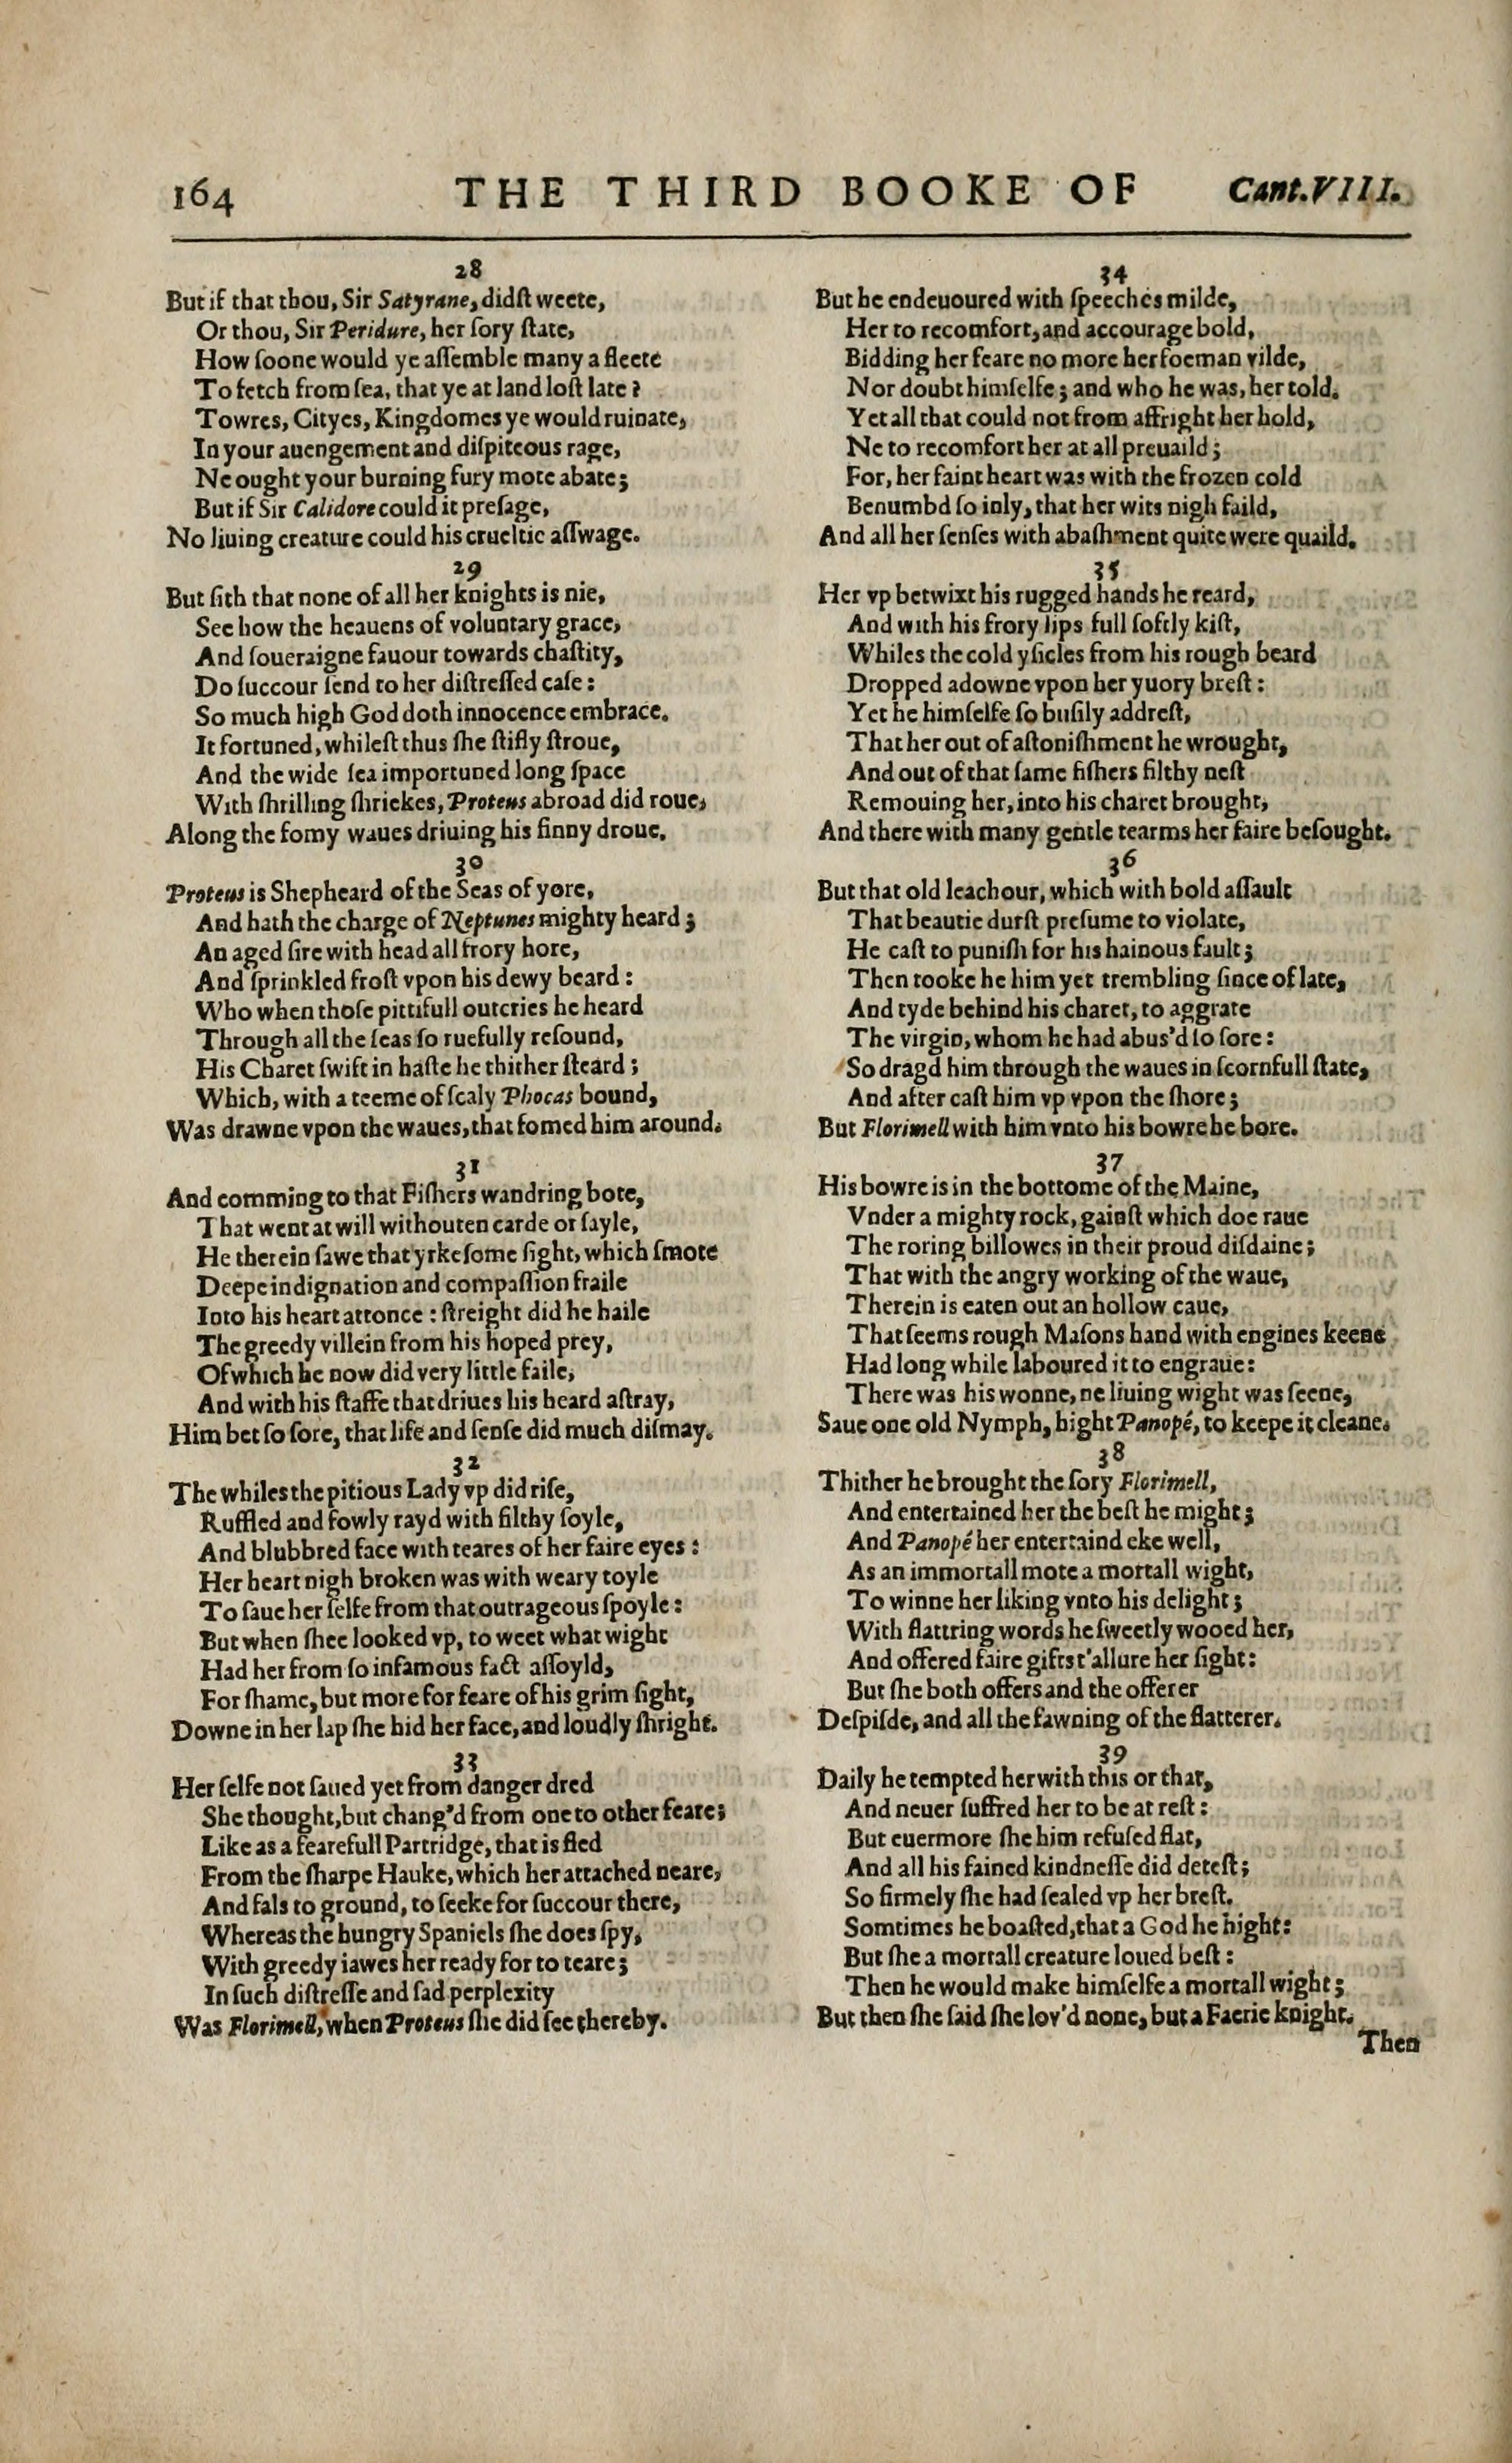 164 THE THIRD BOOKE OF Cant.VIII.
28
But if that thou, Sir Satyrane, didſt weete,
Or thou, Sir Peridure, her ſory ſtate,
How ſoone would ye aſſemble many a fleete
To fetch from ſea, that ye at land loſt late?
Towres, Cityes, Kingdomes ye would ruinate,
In your auengement and diſpiteous rage,
Ne ought your burning fury mote abate;
But if Sir Calidore could it preſage,
No liuing creature could his crueltie aſſwage.
29
But ſith that none of all her knights is nie,
See how the heauens of voluntary grace,
And ſoueraigne fauour towards chaſtity,
Do ſuccour ſend to her diſtreſſed caſe:
So much high God doth innocence embrace.
It fortuned, whileſt thus ſhe ſtifly ſtroue,
And the wide ſea importuned long ſpace
With ſhrilling ſhriekes, Proteus abroad did roue,
Along the fomy waues driuing his finny droue.
30
Proteus is Shepheard of the Seas of yore,
And hath the charge of Neptunes mighty heard;
An aged ſire with head all frory hore,
And ſprinkled froſt vpon his dewy beard:
Who when thoſe pittifull outcries he heard
Through all the ſeas ſo ruefully reſound,
His Charet ſwift in haſte he thither ſteard;
Which, with a teeme of ſcaly Phocas bound,
Was drawne vpon the waues, that fomed him around.
31
And comming to that Fiſhers wandring bote,
That went at will withouten carde or ſayle,
He therein ſawe that yrkeſome ſight, which ſmote
Deepe indignation and compaſſion fraile
Into his heart attonce: ſtreight did he haile
The greedy villein from his hoped prey,
Of which he now did very little faile,
And with his ſtaffe that driues his heard aſtray,
Him bet ſo ſore, that life and ſenſe did much diſmay.
32
The whiles the pitious Lady vp did riſe,
Ruffled and fowly rayd with filthy ſoyle,
And blubbred face with teares of her faire eyes:
Her heart nigh broken was with weary toyle
To ſaue her ſelfe from that outrageous ſpoyle:
But when ſhee looked vp, to weet what wight
Had her from ſo infamous fact aſſoyld,
For ſhame, but more for feare of his grim ſight,
Downe in her lap ſhe hid her face, and loudly ſhright.
33
Her ſelfe not ſaued yet from danger dred
She thought, but chang'd from one to other feare;
Like as a fearefull Partridge, that is fled
From the ſharpe Hauke, which her attached neare,
And fals to ground, to ſeeke for ſuccour there,
Whereas the hungry Spaniels ſhe does ſpy,
With greedy iawes her ready for to teare;
In ſuch diſtreſſe and ſad perplexity
Was Florimell, when Proteus ſhe did ſee thereby.
34
But he endeuoured with ſpeeches milde,
Her to recomfort, and accourage bold,
Bidding her feare no more her foeman vilde,
Nor doubt himſelfe; and who he was, her told.
Yet all that could not from affright her hold,
Ne to recomfort her at all preuaild;
For, her faint heart was with the frozen cold
Benumbd ſo inly, that her wits nigh faild,
And all her ſenſes with abaſhment quite were quaild.
35
Her vp betwixt his rugged hands he reard,
And with his frory lips full ſoftly kiſt,
Whiles the cold yſicles from his rough beard
Dropped adowne vpon her yuory breſt:
Yet he himſelfe ſo buſily addreſt,
That her out of aſtoniſhment he wrought,
And out of that ſame fiſhers filthy neſt
Remouing her, into his charet brought,
And there with many gentle tearms her faire beſought.
36
But that old leachour, which with bold aſſault
That beautie durſt preſume to violate,
He caſt to puniſh for his hainous fault;
Then tooke he him yet trembling ſince of late,
And tyde behind his charet, to aggrate
The virgin, whom he had abus'd ſo ſore:
So dragd him through the waues in ſcornfull ſtate,
And after caſt him vp vpon the ſhore;
But Florimell with him vnto his bowre he bore.
37
His bowre is in the bottome of the Maine,
Vnder a mighty rock, gainſt which doe raue
The roring billowes in their proud diſdaine;
That with the angry working of the waue,
Therein is eaten out an hollow caue,
That ſeems rough Maſons hand with engines keene
Had long while laboured it to engraue:
There was his wonne, ne liuing wight was ſeene,
Saue one old Nymph, hight Panopé, to keepe it cleane.
38
Thither he brought the ſory Florimell,
And entertained her the beſt he might;
And Panopé her entertaind eke well,
As an immortall mote a mortall wight,
To winne her liking vnto his delight;
With flattring words he ſweetly wooed her,
And offered faire gifts t'allure her ſight:
But ſhe both offers and the offerer
Deſpiſde, and all the fawning of the flatterer.
39
Daily he tempted her with this or that,
And neuer ſuffred her to be at reſt:
But euermore ſhe him refuſed flat,
And all his fained kindneſſe did deteſt;
So firmely ſhe had ſealed vp her breſt.
Somtimes he boaſted, that a God he hight:
But ſhe a mortall creature loued beſt:
Then he would make himſelfe a mortall wight;
But then ſhe ſaid ſhe lov'd none, but a Faerie knight.
Then